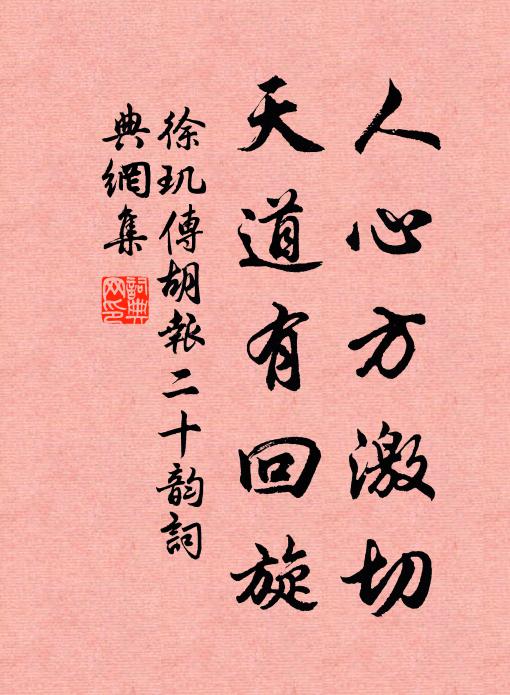 人心方激切
天道有回旋
徐玑傳胡報二十韵詞
典網集
詞典
网印